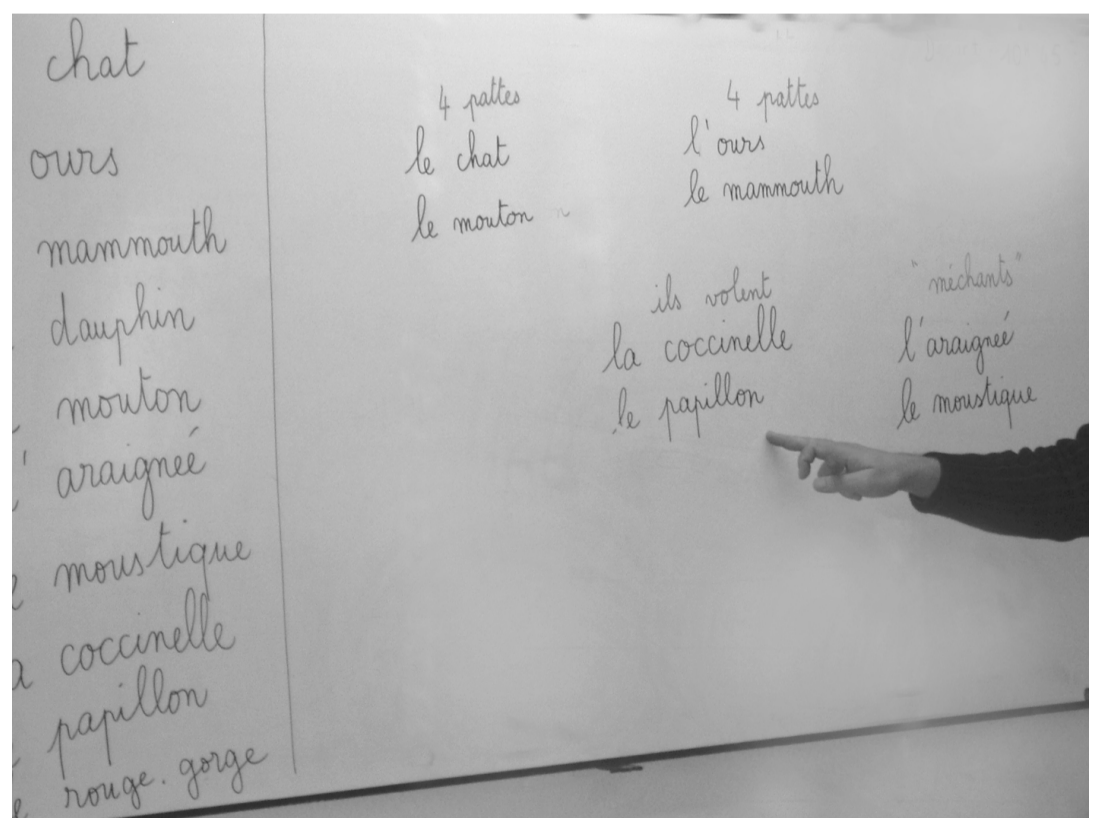 chat
ours
mammouth
dauphin
mouton
araigneé
moustique
a coccinelle
papillon
rouge-gorge
4 pattes
le chat
le mouton
4 pattes
l'ours
le mammouth
ils volent
la coccinelle
le papillon
"méchants"
l'araigneé
le moustique